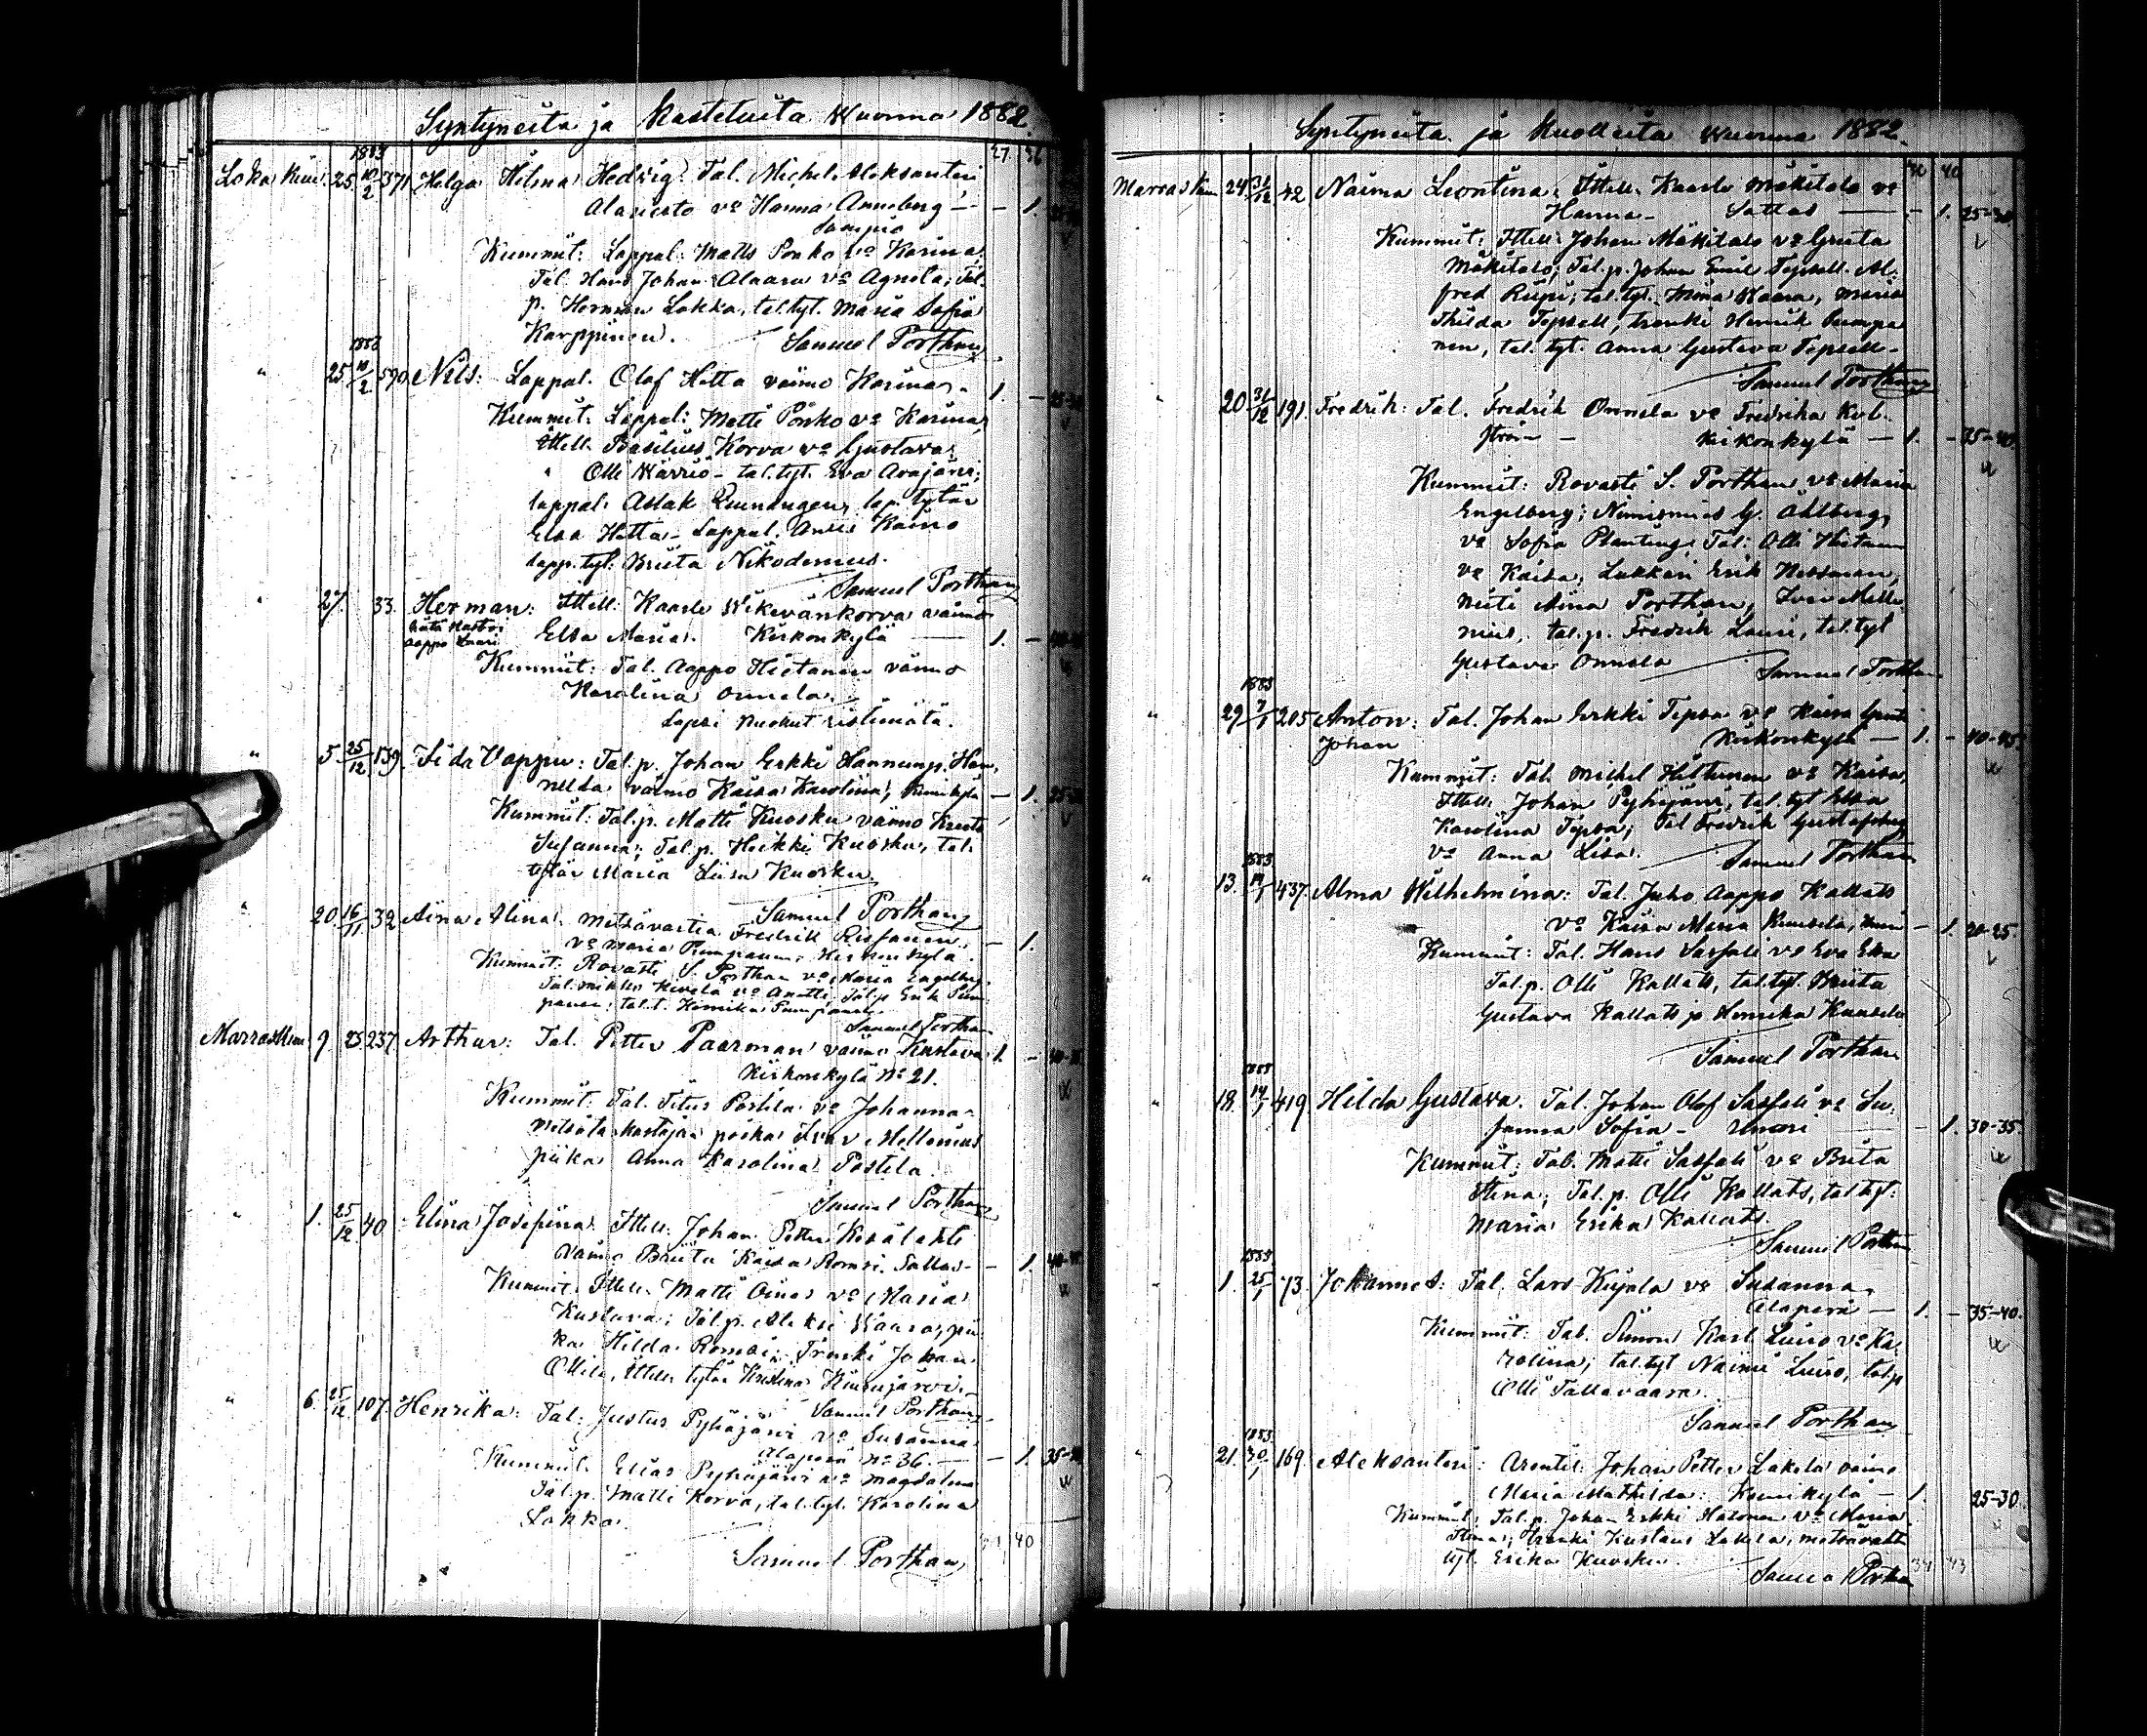 Syntyneitä ja Kastetuita Wuonna 1882.
1883 27. 36
Loka Kuu. 25 10/2 371 Helga Hilma Hedvig: Tal. Michel Aleksanteri
Alariesto vo Hanna Anneberg — 1.
Sompio
Kummit: Lappal. Matts Ponko vo Karina,
Tal. Hans Johan Alaara vo Agneta, Tal.
p. Herman Lokka, tal.tyt. Maria Sofia
Karppinen.
Samuel Porthan
1883
" 25 10/2 590 Nils: Lappal. Olof Hetta vaimo Karina 1. —
Kummit: Lappal: Matti Ponko vo Karina,
Ittell. Basilius Korva vo Gustava,
" Olli Wärriö - tal.tyt. Eva Arajärvi;
lappal. Aslak lap. tytär
Elsa Hetta - Lappal. Anders
lapp.tyt. Briita Nikodemus.
Samuel Porthan
" 27. 33. Herman: Ittell: Kaarle Wikevänkorva vaimo
hätä kastoi
Aappo
Elsa Maria. Kirkonkylä — 1. —
Kummit: Tal. Aappo Hietanen vaimo
Karolina Onnela.
Lapsi kuollut ristimätä.
" 5 25/12 139. Fida Vappu: Tal.p. Johan Erkki Hannunp. Han-
nelda vaimo Kaisa Karolina, — 1. 25-30
Kummit: Tal.p. Matti Kuosku vaimo Kreeta
Susanna; Tal.p. Heikki Kuosku, tal.
tytär Maria Liisa Kuosku.
Samuel Porthan
" 20. 16/11 32 Aina Alina: Metsävartia Fredrik Rissanen
vo Maria Pumpanen, Kirkonkylä — 1.
Kummit: Rovasti S. Porthan vo Maria Engelberg,
Tal. Mikkel vo Anetti, Tal.p. Erik Pum-
panen, tal.t. Henrika Pumpanen
Samuel Porthan
Marraskuu 9. 25 237. Arthur: Tal. Petter Paarman vaimo Kustava 1. —
Kirkonkylä No 21.
Kummit: Tal. Titus Postila vo Johanna
poika Ivar Mellenius
piika Anna Karolina Postila.
Samuel Porthan
" 1. 25/12 40 Elina Josefina: Ittell. Johan Petter Kesälahti
vaimo Briita Kaisa Romsi. Sattas — 1. 40-45
Kummit: Ittell. Matti Oinas vo Maria
Kustava; Tal.p. Aleksi Waara, pii-
ka Hilda Romsi; Trenki Johan
Ollila, Ittell. tytär Kristina
Samuel Porthan
" 6. 25/12 107. Henrika: Tal: Justus Pyhäjärvi vo Susanna
Alaperä No 36. — 1. 35-
Kummit: Elias Pyhäjärvi vo Magdalena
Tal.p. Matti Korva, tal.tyt. Karolina
Lokka.
40
Samuel Porthan
Syntyneitä ja Kuolleita Wuonna 1882.
40
Marraskuu 24 31/12 42 Naima Leontina: Ittell. Kaarle Mäkitalo vo
Hanna - Sattas — 1. 25-30
Kummit: Ittell. Johan Mäkitalo vo Greta
Mäkitalo; Tal.p. Johan Emil Tepsell. Al-
fred Riipi; tal.tyt. Mina Waara, Maria
Thilda Tepsell, trenki Henrik Pumpa
nen, tal. tyt. Anna Gustava Tepsell -
Samuel Porthan
20 31/12 191. Fredrik: Tal. Fredrik Onnela vo Fredrika Kvl-
ström - Kirkonkylä — 1. — 35-40.
Kummit: Rovasti S. Porthan vo Maria
Engelberg; Nimismies G. Ahlberg
vo Sofia Planting, Tal. Olli Hietanen
vo Kaisa, Lukkari Erik
Neiti Aina Porthan, Ivar Melle
nius, tal.p. Fredrik Lauri, tal.tyt
Gustava Onnela
Samuel Porthan
1883
" 29 7/1 205 Anton: Tal. Johan Erkki Tepsa vo Kaisa Greta
Johan Kirkonkylä — 1. — 40-45.
Kummit: Tal. Michel Hiltunen vo Kaisa,
Ittell. Johan Pyhäjärvi, tal.tyt Elsa
Karolina Tepsa; Tal Fredrik Gustafsberg
vo Anna Lisa.
Samuel Porthan
1883
" 13. 14/1 437. Alma Wilhelmina: Tal. Juho Aappo Kallats
vo Kaisa Maria Kuusela, — 1. 20-25.
Kummit: Tal. Hans Sassali vo Eva Elsa
Tal.p. Olli Kallats, tal.tyt. Briita
Gustava Kallats ja Henrika Kuusela
Samuel Porthan
1883
" 18. 14/1 419 Hilda Gustava. Tal. Johan Olof Sassali vo Su-
sanna Sofia - Unari — 1. 30-35.
Kummit: Tal. Matti Sassali vo Brita
Stina; Tal.p. Olli Kallats, tal.tyt:
Maria Erika Kallats.
Samuel Porthan
1883
" 1. 25/1 73. Johannes: Tal. Lars Kujala vo Susanna
Alaperä — 1. — 35-40.
Kummit: Tal. Simon Karl Luiro vo Ka-
rolina; tal.tyt Naimi Luiro, tal.p
Olli Tallavaara.
Samuel Porthan
1883
" 21. 30/1 169. Aleksanteri: Arentil. Johan Petter Lakela vaimo
Maria Mathilda: — 1. 25-30.
Kummit: Tal.p. Johan Erkki Halonen vo Maria
Stina; Trenki Kustaus Lakela, metsävahti
tyt. Erika Kuosku.
Samuel Porthan